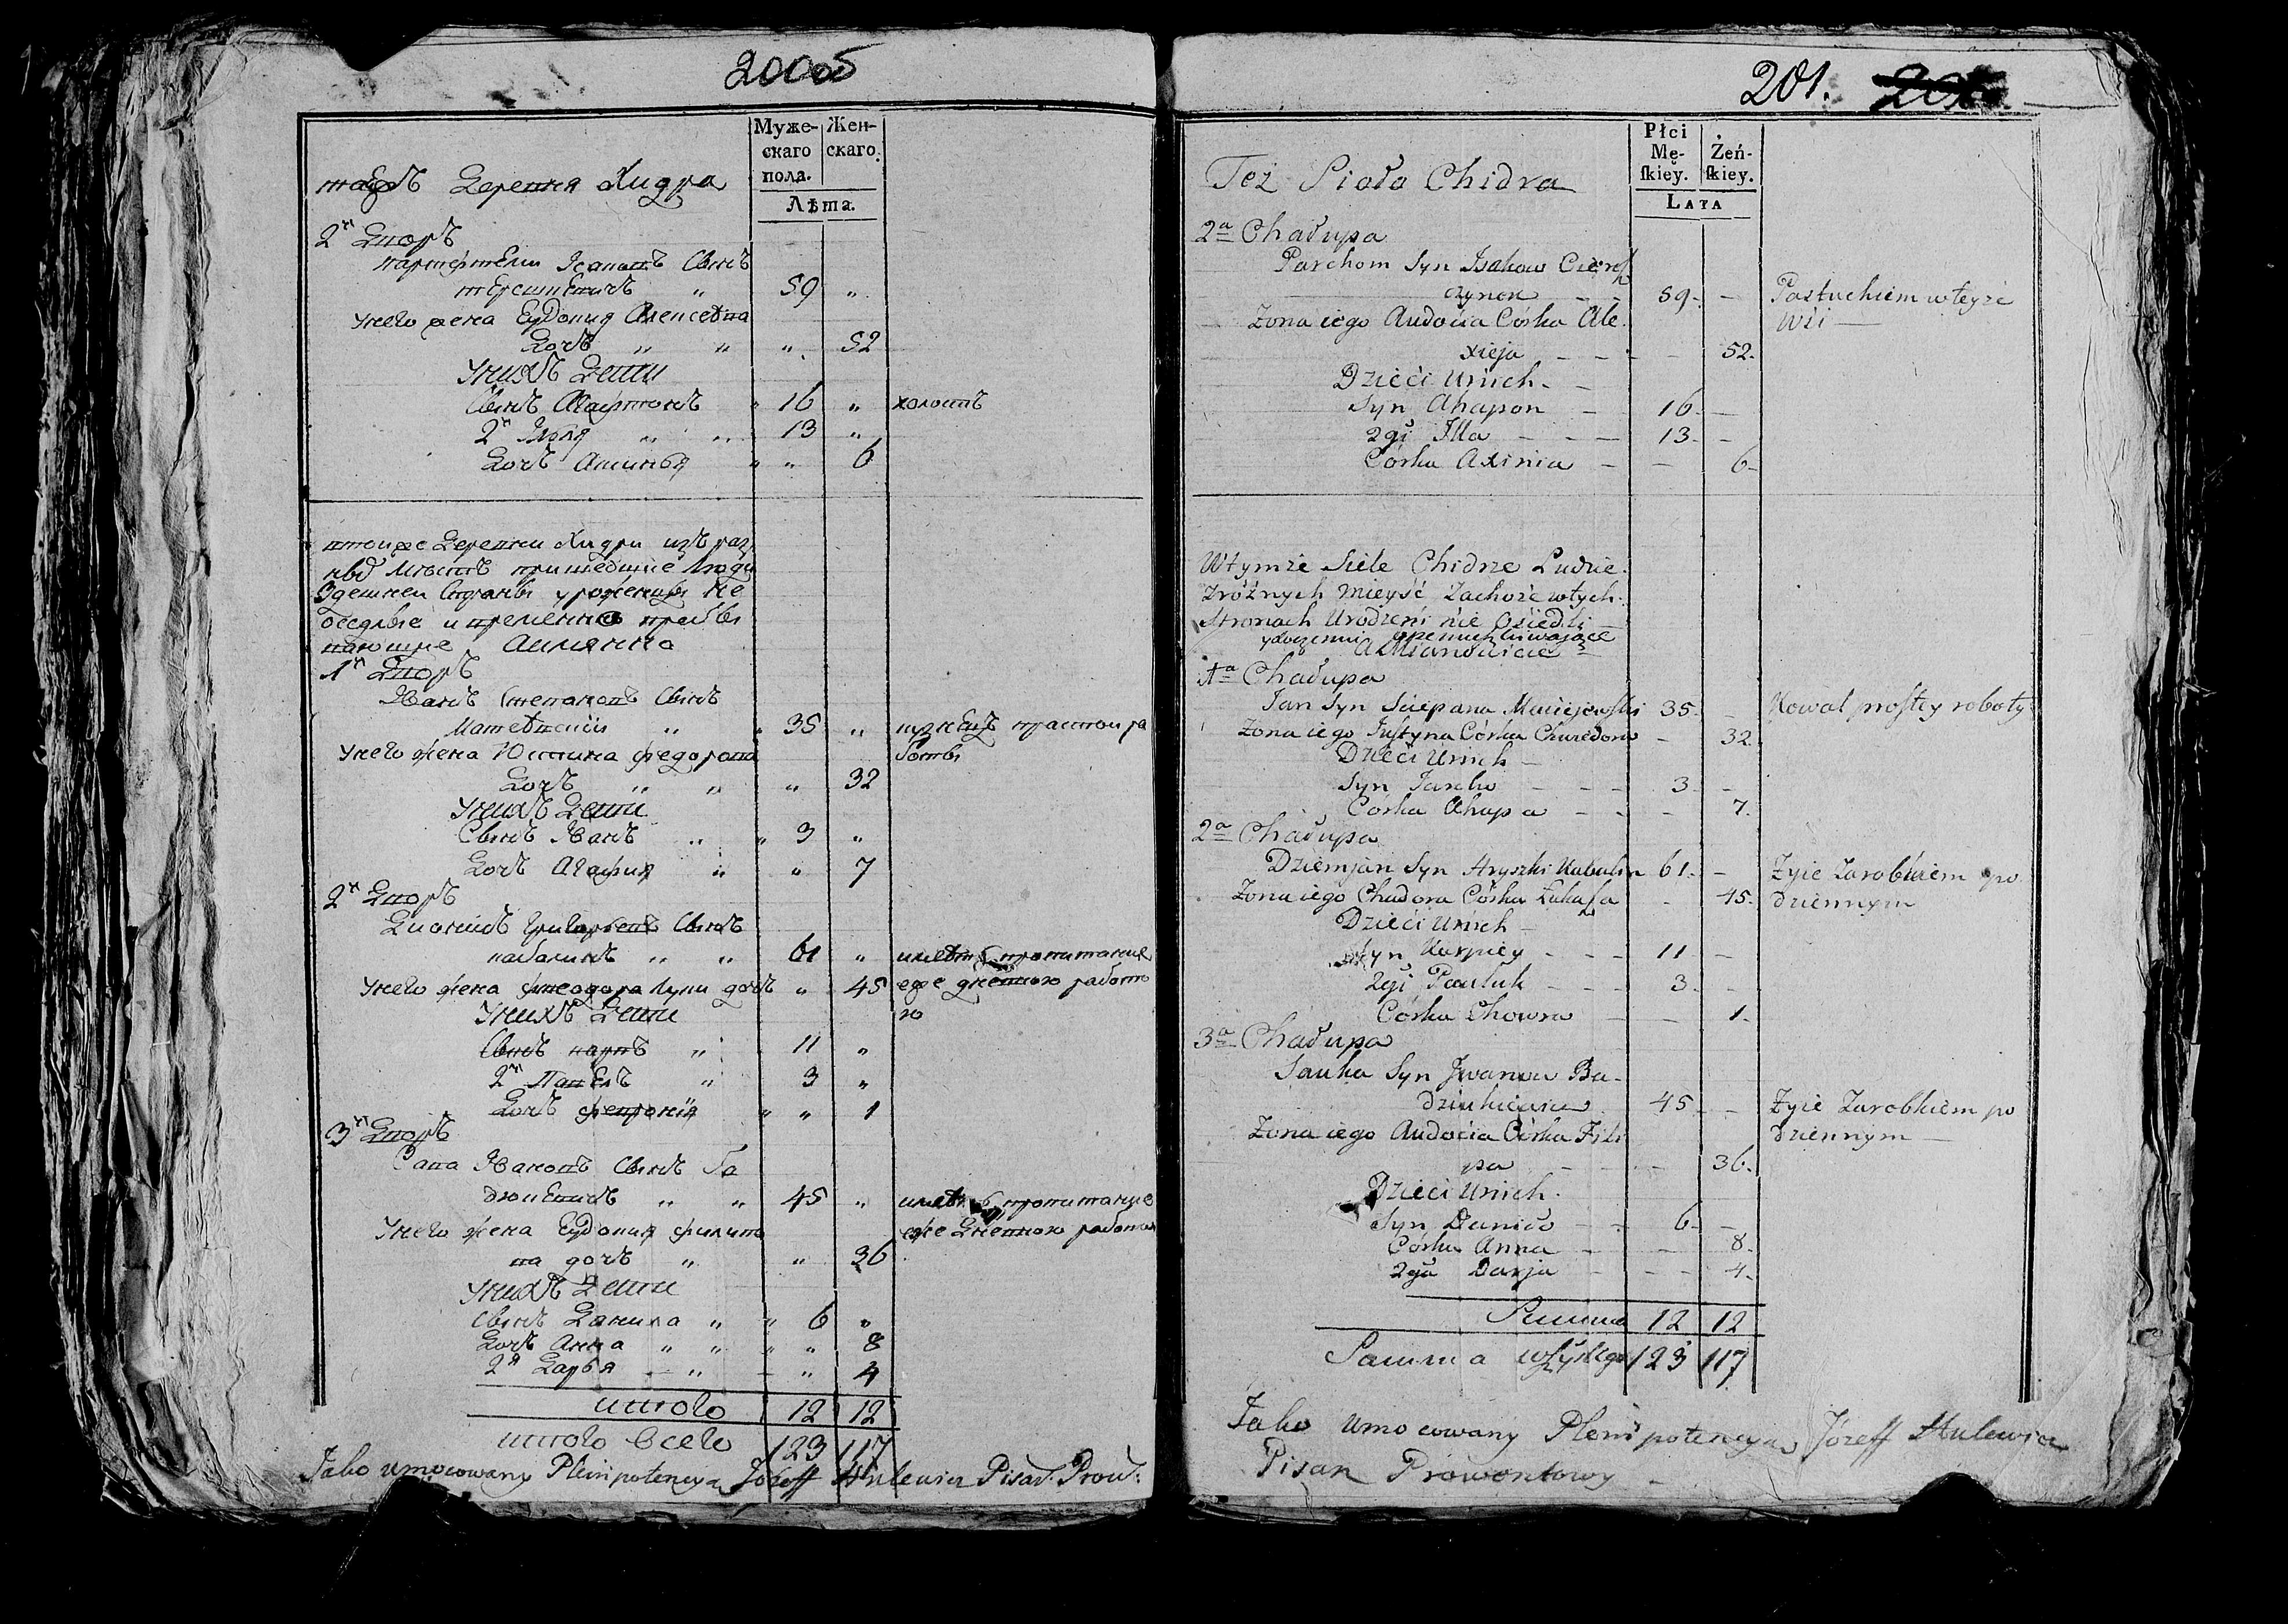 200об
Муже-
скаго
пола.
Жен-
скаго.
Лѣта.
Деревня Хидра
2й Дворъ
Исаковъ Сынъ
терешкевичъ " 59 "
Унего жена Евдокия Алексеева
Дочь " " " 52
Унихъ Дети
Сынъ Агафонъ " 16 " холостъ
2й Илья " " 13 "
Дочь Аксинья " " 6
втойже Деревни Хидри изъ раз
ныхъ Местъ пришедшие Люди
Здешней Стороны уроженцы не
оседлые и временно пребы
вающие Аимянно
1й Дворъ
Иванъ Степановъ Сынъ
Матевскій " " 35 " кузнецъ простой ра
Унего жена Юстина Федорова боты
Дочь " " " 32
Унихъ Дети
Сынъ Иванъ " " 3 "
Дочь Агафия " " 7
2й Дворъ
Григорьевъ Сынъ
кабалинъ " " 61 " имеетъ пропитание
Унего жена Феодора Луки дочь " 45 дневною работо
Унихъ Дети ю
Сынъ карпъ " 11 "
2й Павелъ " 3 "
Дочь Феврония " " 1
3й Дворъ
Сава Ивановъ Сынъ Ба
дюкевичъ " " 45 " имеетъ пропитание
Унего жена Евдокия Филипо
ва дочь " " 36 Дневною работою
Унихъ Дети
Сынъ Данила " " 6 "
Дочь Анна " " " " 8
2я Дарья " " 4
итого 12 12
итого всего 123 117
Jako umocowany Plenipotencyą Józeff Hulewicz Pisar. Prow:
201.
Płci
Mę-
skiey.
Żeń-
skiey.
Lata
Też Sioło Chidra
2a Chałupa
Parchom Syn Isakow Cieresz
czynon 59 - Pastuchiem wteyże
Zona iego Audocia Córka Ale. Wsi
xieja - - - - 52.
Dzieći Unich. -
Syn Ahapon - 16 -
2gi Illa - - - 13. -
Córka Axinia - - 6-
Wtymże Siele Chidrze Ludzie.
Zróżnych mieyść Zachoże wtych.
Stronach Urodzeni nie Osiedli
a Mianowicie
1a Chałupa
Jan Syn Sciepana Maciejowski 35. - Kowal prostey roboty
Zona iego Justyna Córka Chwedora - 32
Dzieći Unich
Syn Jasko - - - 3 -
Córka Ahapa - - - 7.
2a Chałupa
Dziemjan Syn Hryszki Kabalin 61. - Zyie Zarobkiem po
Zona iego Chadora Córka Łukasza - 45. dziennym
Dzieći Unich -
Syn Karpiey - - - 11 -
2gi Pauluk - - - 3. -
Córka Chowra - - 1.
3a Chałupa
Sauka Syn Jwanow Ba-
dziukiewicz 45 - - Zyie Zarobkiem po
Zona iego Audocia Córka Fili dziennym
pa - - - 36.
Dzieci Unich.
Syn Daniło - - 6- -
Córka Anna - - 8.
2ga Darja - - - 4.
Summa 12 12
Summa wszystkiego 123 117
Jako umocowany Plenipotencyą Józeff Hulewicz
Pisarz Prowentowy -